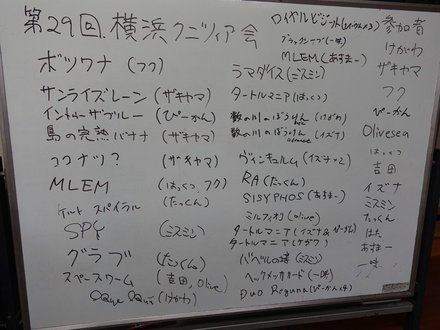 第29回 横浜クニツィア会
ボツワナ (フク)
サンライズレーン (ザキヤマ)
イントゥーザブルー (ぴーかん)
島の完熟バナナ (ザキヤマ)
ココナツ? (ザキヤマ)
MLEM (はっくつ フク)
ケルト スパイラル (たっくん)
SPY (ミスミン)
グラブ (たっくん)
スペースワーム (吉田, Olive)
(けがわ)
ロイヤルビジット(
ブラックシープ(一味)
MLEM(あすまー)
ラマダイス(ミスミン)
タートルマニア(はっくつ)
数の川のぼうけん (けがわ)
数の川のぼうけん (イズナ)
ヴィンキュルム (イズナ×2)
RA(たっくん)
SISYPHOS(あすまー)
ミルフィオリ(olive)
タートルマニア(イズナ&ぴーかん)
タートルマニア(ケガワ)
バベルの塔(ミスミン)
ヘックメックカード(一味)
DUO Reguna(ぴーかん×4)
参加者
けがわ
ザキヤマ
フク
ぴーかん
Olivesea
はっくつ
吉田
イズナ
ミスミン
たっくん
はた
あすまー
一味